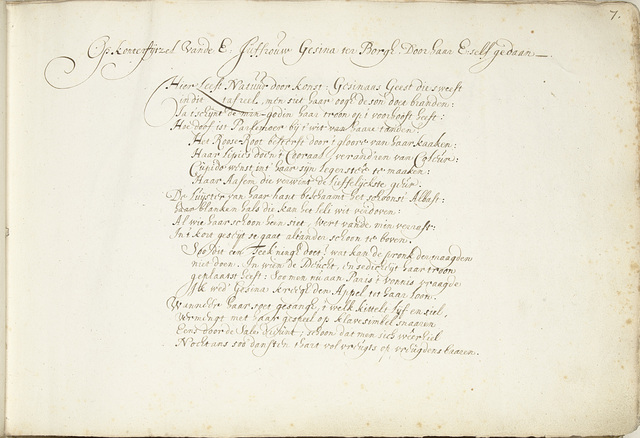 7.
Op 't Konterfijtzel Vande E. Juffrouw Gesina ter Borgh. Door haar E. self gedaan
Hier leeft Natuur door konst: Gesinaas Geest die sweeft
in dit tafreel, men siet haar oogh de son doen
Ja 't schijnt de min-goden haar troon op 't voorhooft heeft:
Hoe dof is Parlemoer bij 't wit van haare tanden:
Het Roose-Root besterft door 't gloore van haar kaaken:
Haar lipies doen 't Cooraal veranderen van Coleur:
Cupido wenst in haar sijn legerstêe te maaken:
Haar Aasem die verwint de lieffelijckste geur.
De luijster van haar hant beschaamt het schoonst Albast:
haar blancken hals die kan het leli wit verdoven:
Al wie haar schoon heen siet, wert vande min verrast:
In 't kort gestijt se gaat altander schoon te boven.
Soo dit een Teek'ningh doet! wat kan de pronk der maagden
niet doen. In wien de Deucht, en sedicheijt haar troon
geplaatst heeft: Soo men nu aan Paris 't vonnis vraagde
Ik wed' Gesina kreegh den Appel tot haar loon.
Wanneer haar soet gesangh, 't welk kittelt lijf en siel,
Vermengt met haar gespeel op klavesimbel snaaren
Eens door de Sale schint; schoon dat men sich weerhiel
Nochtans soo dansten 't hart vol vreugts op vreughdens baaren.